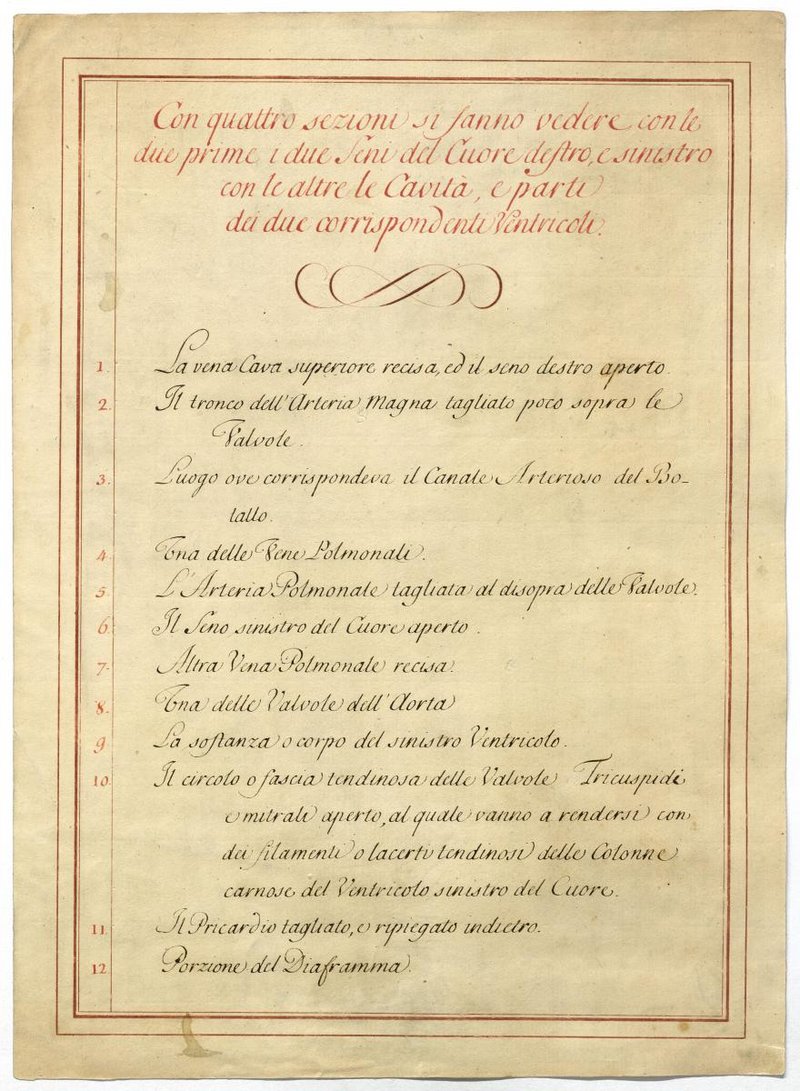 Con quattro sezioni si fanno vedere con le
due prime i due Seni del Cuore destro, e sinistro
con le altre le Cavità, e parti
dei due corrispondenti Ventricoli.
1. La vena Cava superiore recisa, ed il seno destro aperto.
2. Il tronco dell'Arteria Magna tagliato poco sopra le
Valvole.
3. Luogo ove corrispondeva il Canale Arterioso del Bo-
tallo.
4. Una delle Vene Polmonali.
5. L'Arteria Polmonale tagliata al disopra delle Valvole.
6. Il Seno sinistro del Cuore aperto.
7. Altra Vena Polmonale recisa.
8. Una delle Valvole dell'Aorta
9 La sostanza o corpo del sinistro Ventricolo.
10. Il circolo o fascia tendinosa delle Valvole Tricuspidi
e mitrali aperto, al quale vanno a rendersi con
dei filamenti o lacerti tendinosi delle Colonne
carnose del Ventricolo sinistro del Cuore.
11. Il Pricardio tagliato, e ripiegato indietro.
12. Porzione del Diaframma.